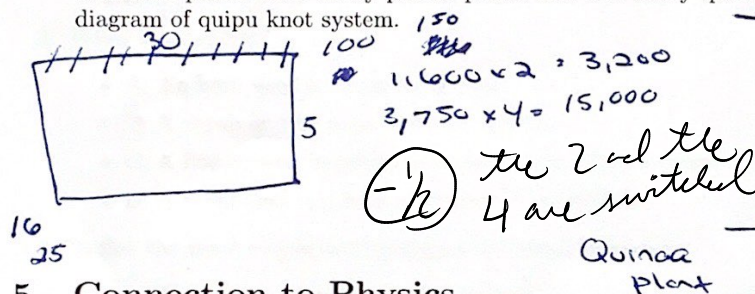 diagram of quipu knot system. 150
30 100
1,600 x 2 = 3,200
5 3,750 x 4 = 15,000
-½ the 2 and the
4 are switched
16
25
Quinoa
plant
5 Connection to Physics